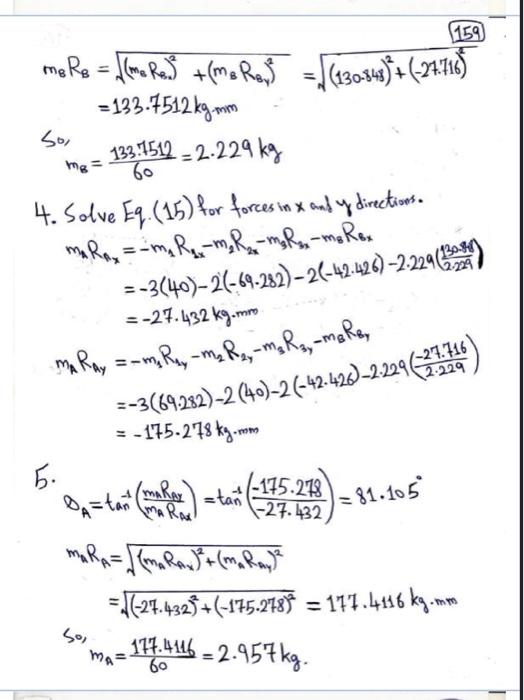 159
m_B R_B = √((m_B R_Bx)² + (m_B R_By)²) = √((130.848)² + (-27.716)²)
= 133.7512 kg-mm
So,
m_B = 133.7512/60 = 2.229 kg
4. Solve Eq. (15) for forces in x and y directions.
m_A R_Ax = -m₁ R₁x - m₂ R₂x - m₃ R₃x - m_B R_Bx
= -3(40) - 2(-69.282) - 2(-42.426) - 2.229(130.848/2.229)
= -27.432 kg.mm
m_A R_Ay = -m₁ R₁y - m₂ R₂y - m₃ R₃y - m_B R_By
= -3(69.282) - 2(40) - 2(-42.426) - 2.229(-27.716/2.229)
= -175.278 kg.mm
5.
θ_A = tan⁻¹(m_A R_Ay/m_A R_Ax) = tan⁻¹(-175.278/-27.432) = 81.105°
m_A R_A = √((m_A R_Ax)² + (m_A R_Ay)²)
= √((-27.432)² + (-175.278)²) = 177.4116 kg.mm
So,
m_A = 177.4116/60 = 2.957 kg.